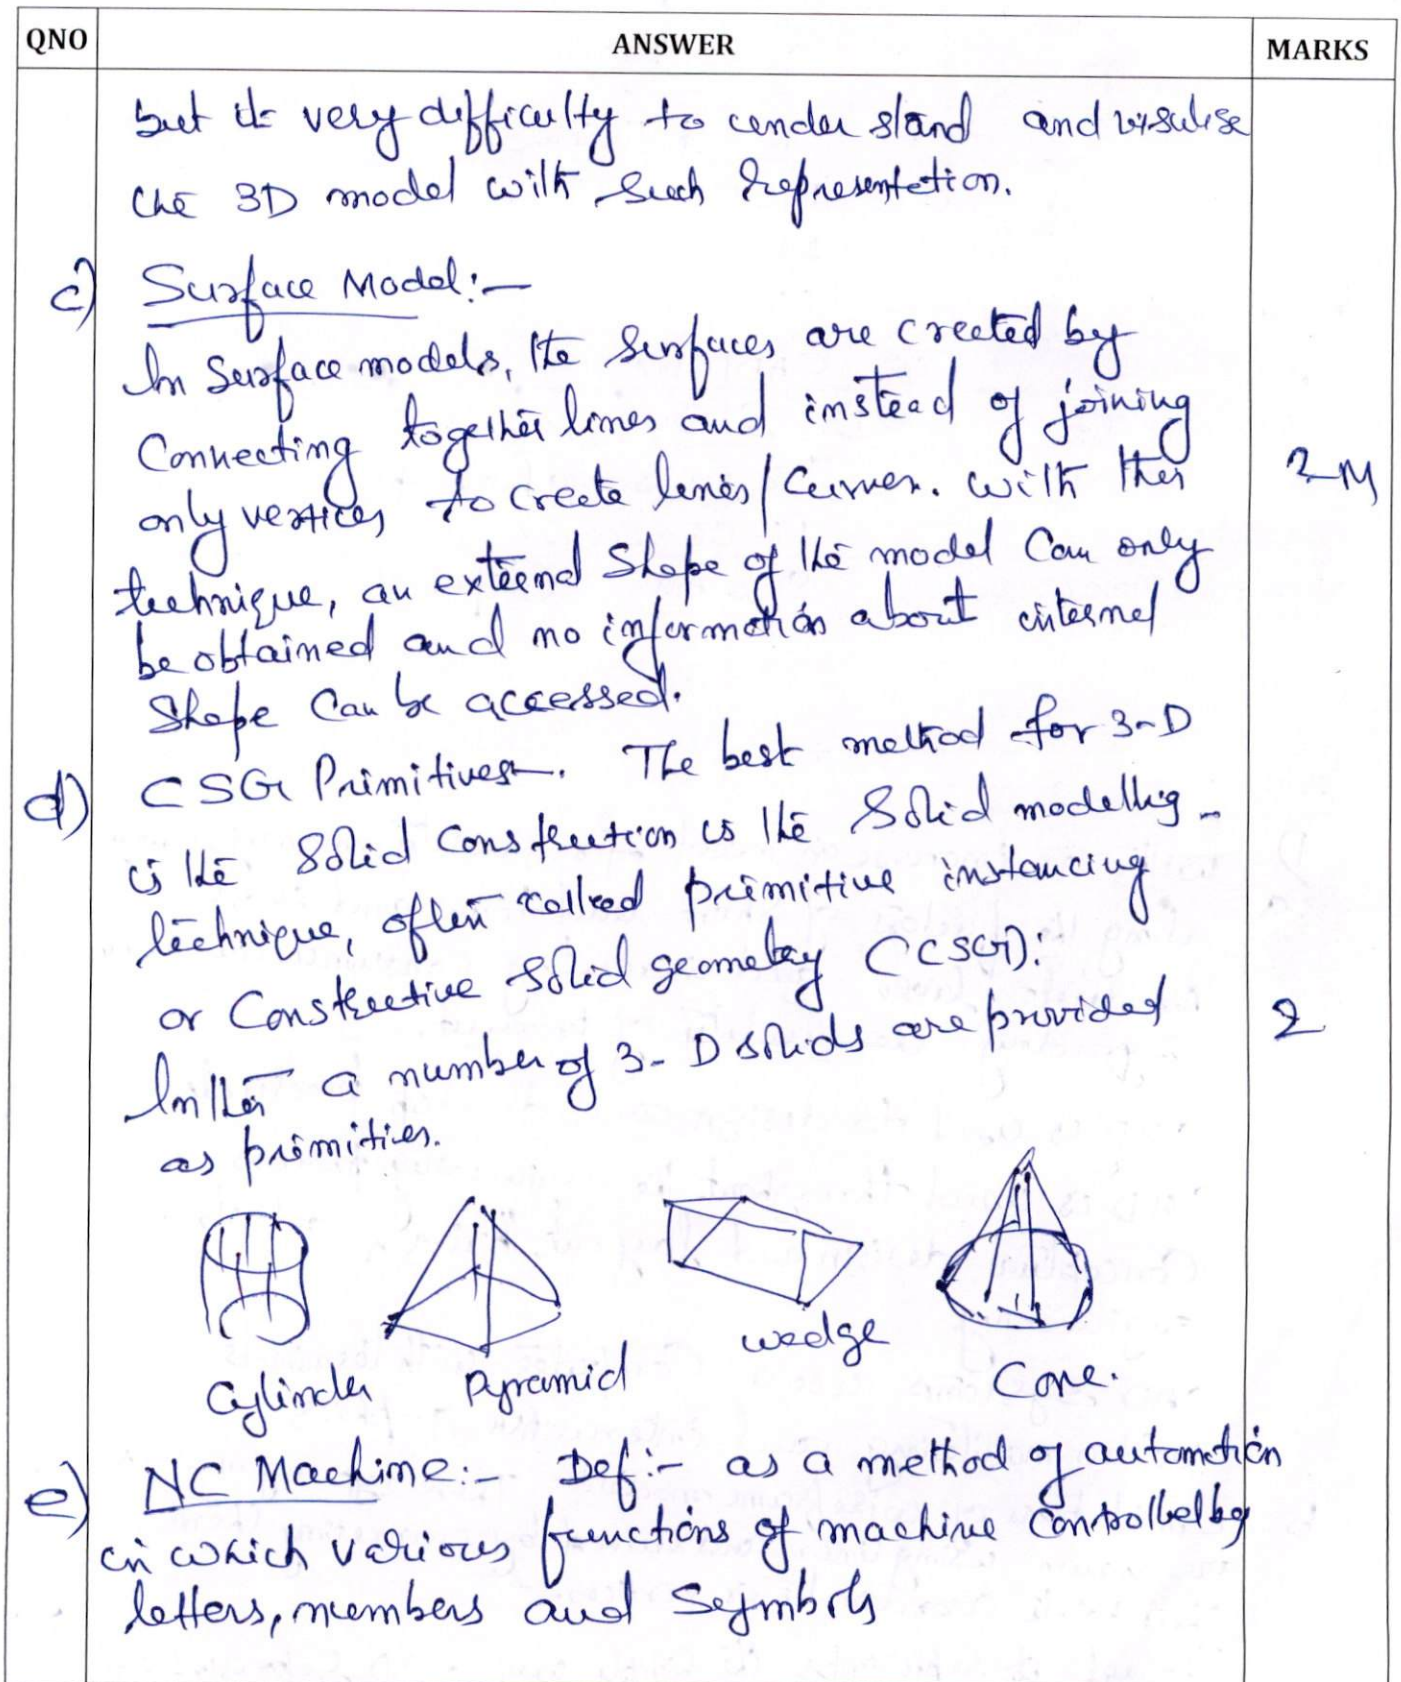 QNO ANSWER MARKS
but it very difficulty to understand and visulise
the 3D model with such representation.
c) Surface Model:-
In Surface models, the surfaces are created by
Connecting together lines and instead of joining
only vertices to create lines/Curves. with this 2M
technique, an external Shape of the model Can only
be obtained and no information about internal
Shape Can be accessed.
d) CSG Primitives. The best method for 3-D
is the Solid Construction is the Solid modelling
technique, often called primitive instancing
or Constructive Solid geometry (CSG):
In this a number of 3-D solids are provided 2
as primitives.
Cylinder Pyramid wedge Cone.
e) NC Machine:- Def:- as a method of automation
in which various functions of machine Controlled by
letters, numbers and Symbols